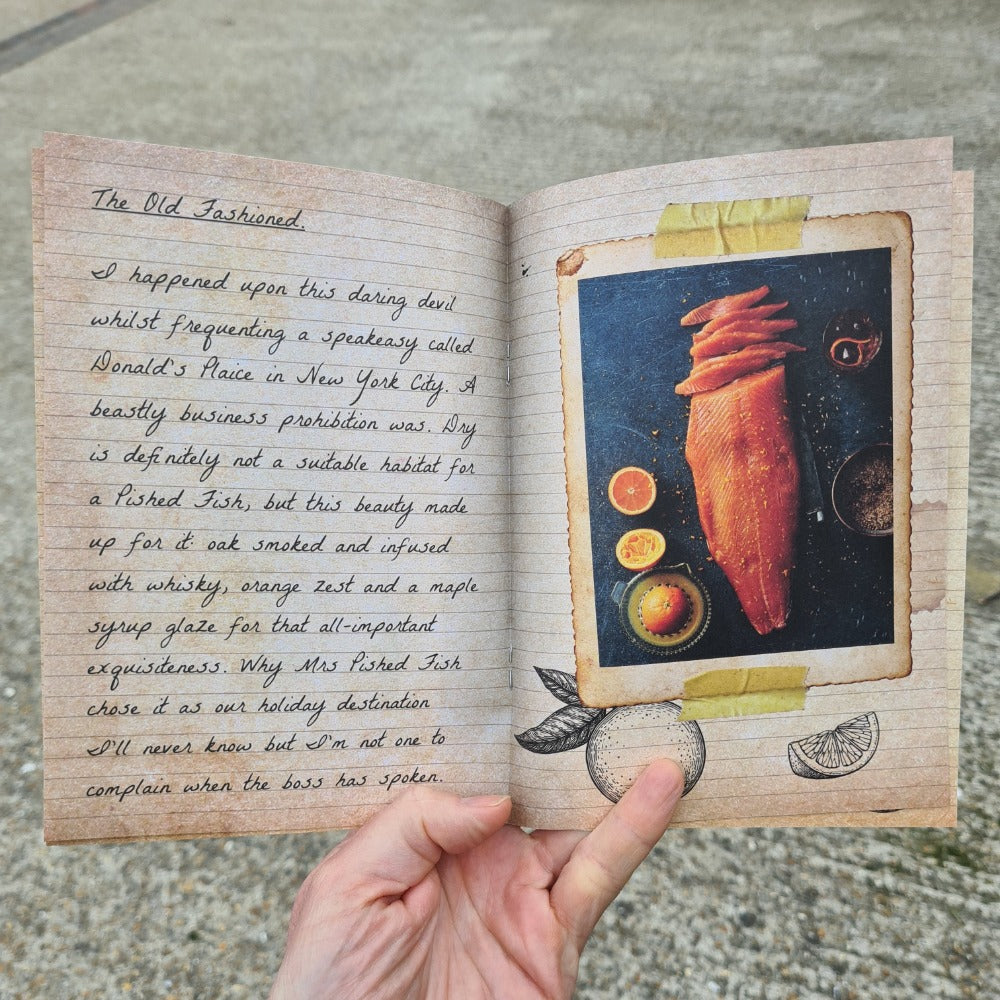 The Old Fashioned.
I happened upon this daring devil
whilst frequenting a speakeasy called
Donald's Plaice in New York City. A
beastly business prohibition was. Dry
is definitely not a suitable habitat for
a Pished Fish, but this beauty made
up for it: oak smoked and infused
with whisky, orange zest and a maple
syrup glaze for that all-important
exquisiteness. Why Mrs Pished Fish
chose it as our holiday destination
I'll never know but I'm not one to
complain when the boss has spoken.